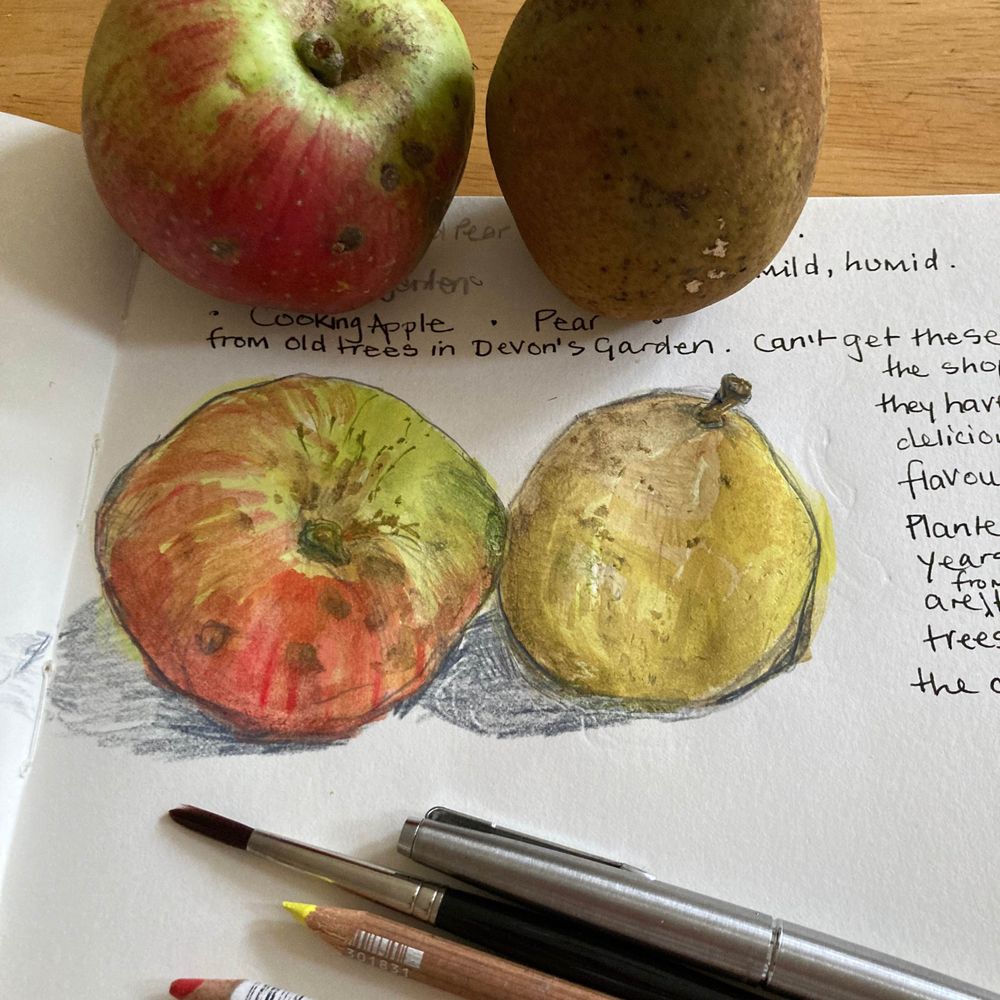 Pear
mild, humid.
• Cooking Apple • Pear
from old trees in Devon's Garden. Can't get these
the
they
flavou
Plante
years
from
are
trees
the
301831